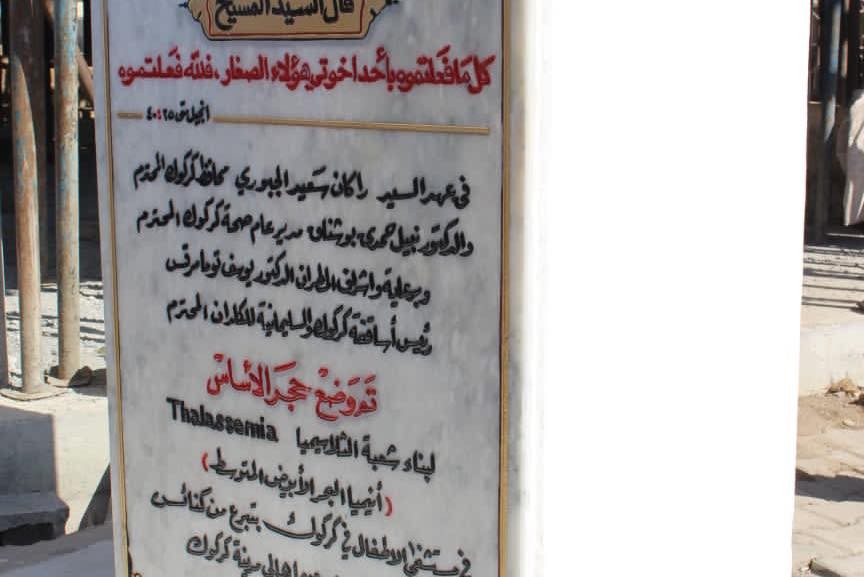 قال السيد المسيح
كل ما فعلتموه بأحد اخوتي هؤلاء الصغار، فلي فعلتموه
انجيل متى ٢٥: ٤٠
في عهد السيد راكان سعيد الجبوري محافظ كركوك المحترم
والدكتور نبيل حمدي بوشناق مدير عام صحة كركوك المحترم
وبرعاية واشراف المطران الدكتور يوسف توما مرقس
رئيس أساقفة كركوك والسليمانية للكلدان المحترم
تم وضع حجر الأساس
لبناء شعبة الثلاسيميا Thalassemia
(أنيميا البحر الأبيض المتوسط)
في مستشفى الاطفال في كركوك بتبرع من كنائس
اهالي مدينة كركوك